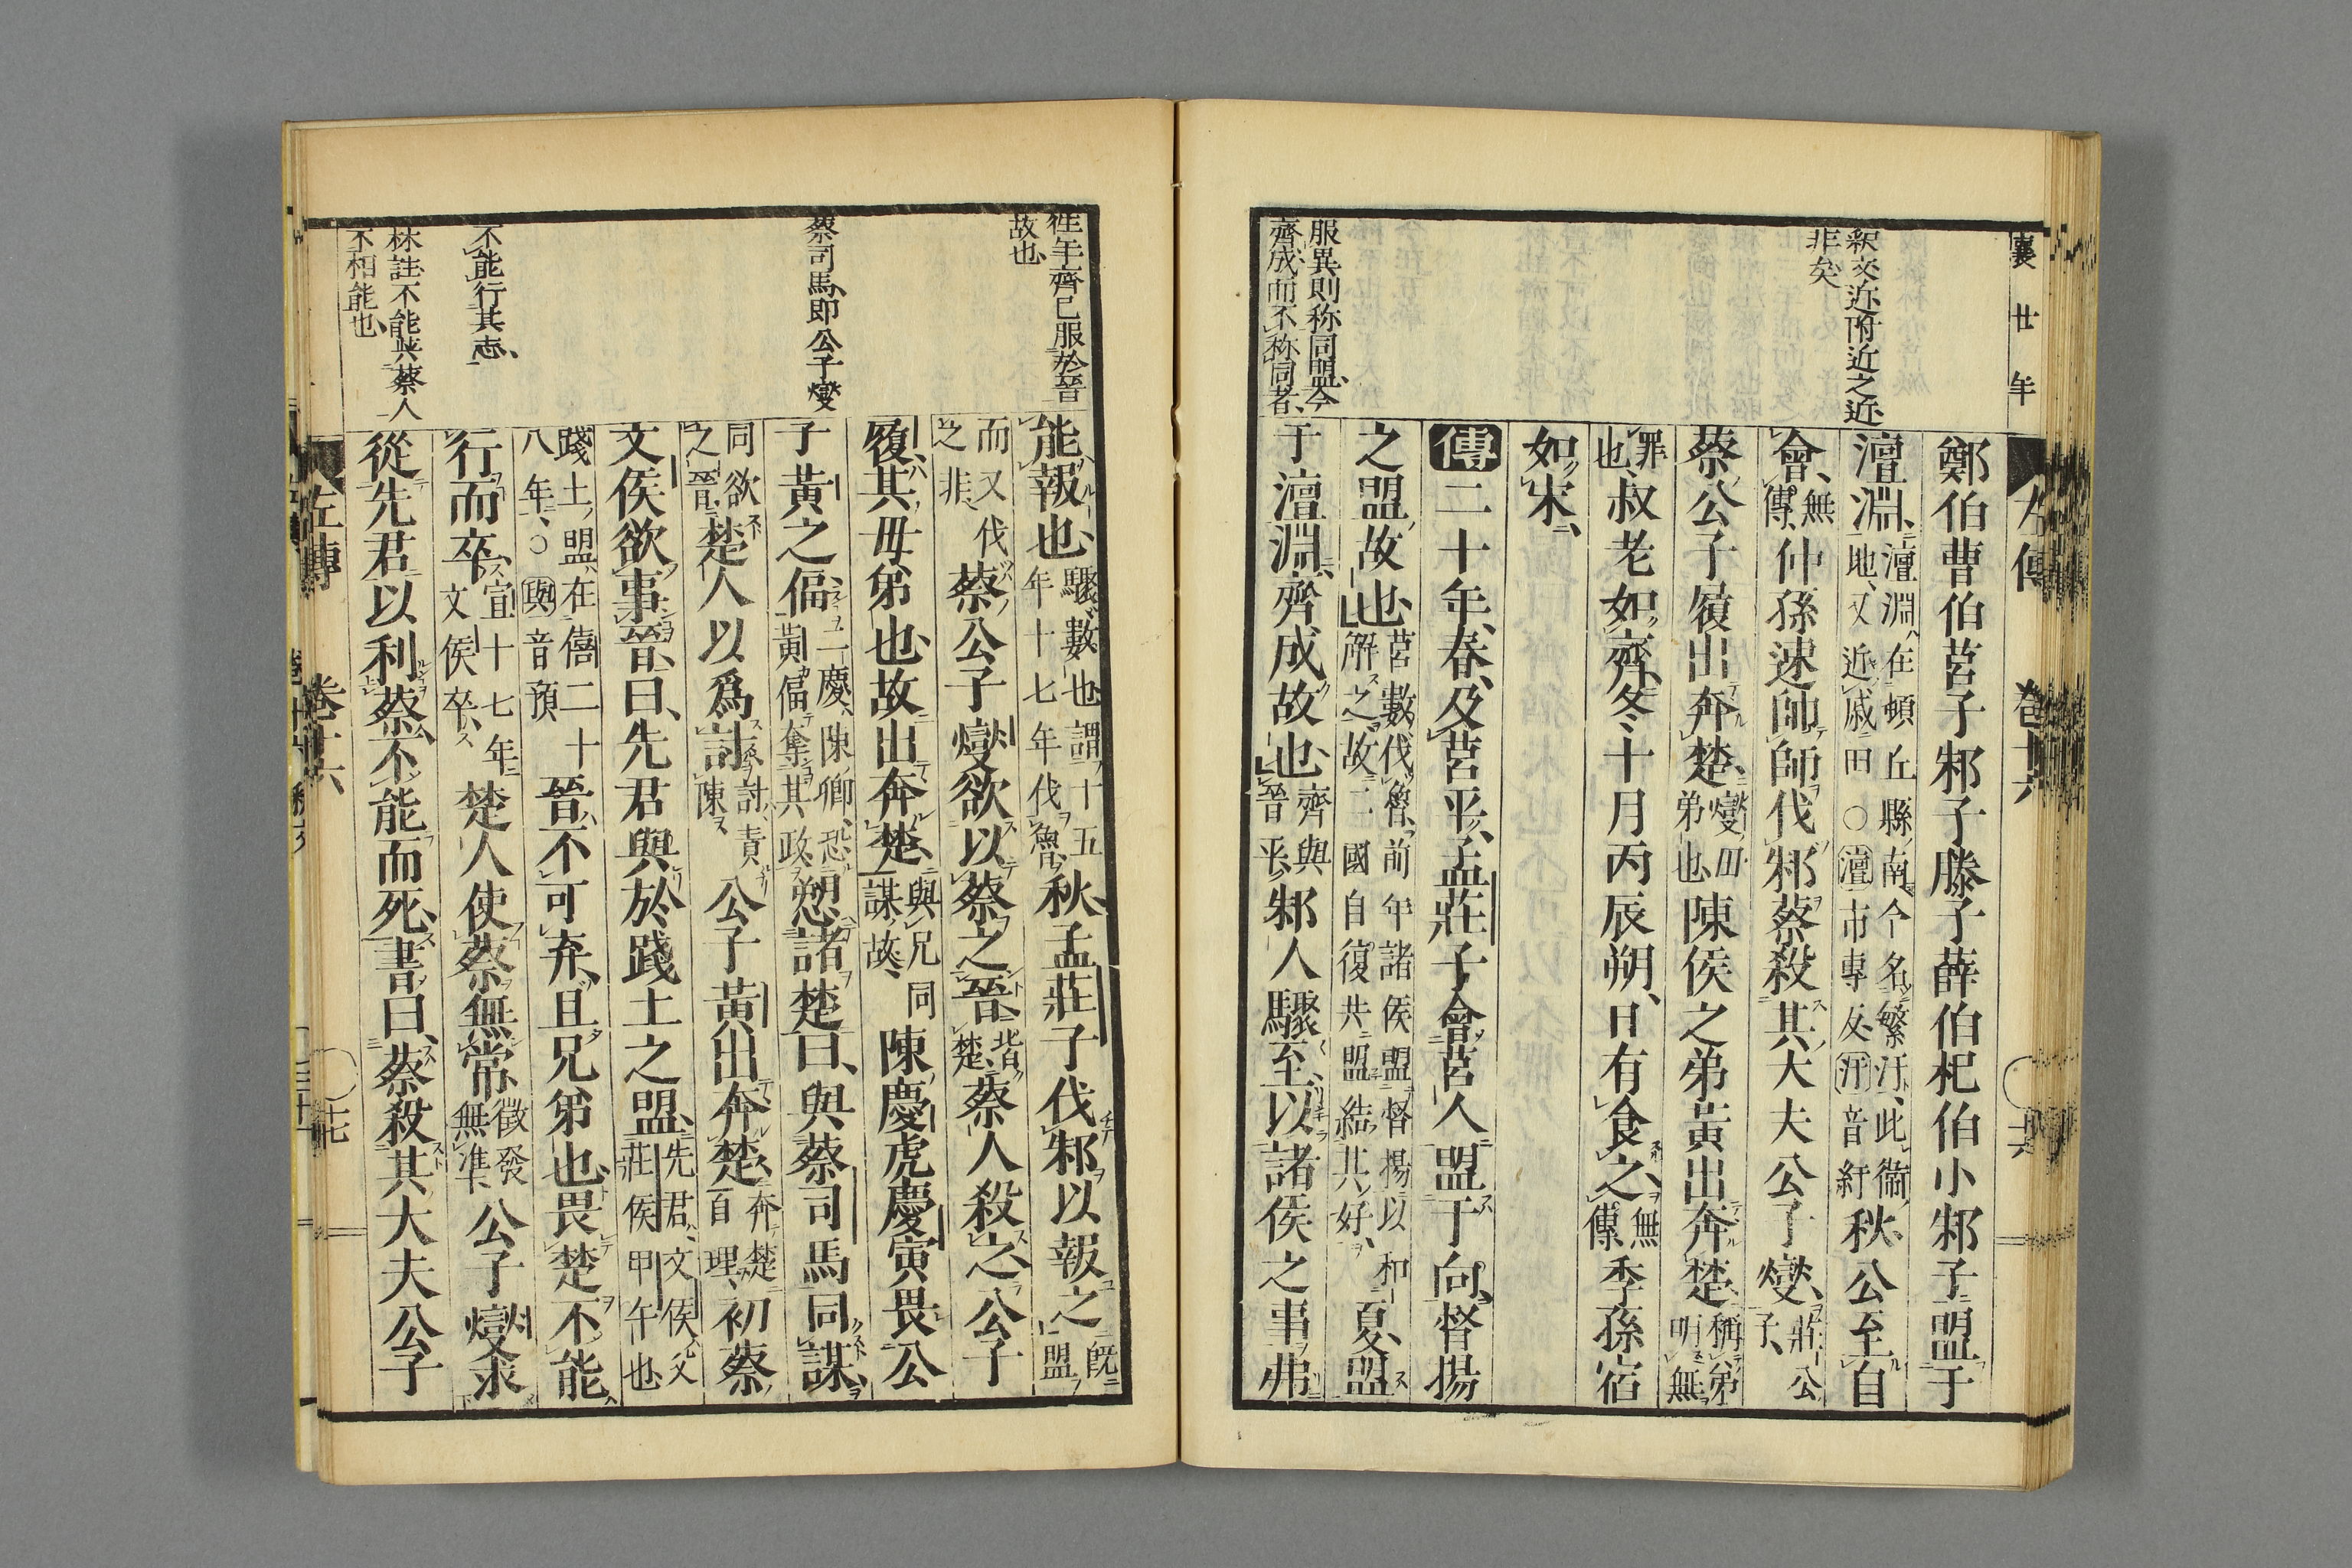 襄廿年
釈文近附近之近
非矣
服異則称同盟今
齊成而不称同者
鄭伯曹伯莒子邾子滕子薛伯杞伯小邾子盟于
澶淵澶淵在頓丘縣南今名繁汙此衞地又近戚田○澶市專反汙音紆秋公至自
會無傳仲孫速帥師伐邾蔡殺其大夫公子燮莊公子
蔡公子履出奔楚燮毋弟也陳侯之弟黃出奔楚稱弟明無
罪也叔老如齊冬十月丙辰朔日有食之無傳季孫宿
如宋
傳二十年春及莒平孟莊子會莒人盟于向督揚
之盟故也莒數伐魯前年諸侯盟督揚以和解之故二國自復共盟結其好夏盟
于澶淵齊成故也齊與晉平邾人驟至以諸侯之事弗
往年齊已服於晉
故也
蔡司馬即公子燮
不能行其志
林註不能與蔡人
不相能也
能報也驟數也謂十五年十七年伐魯秋孟莊子伐邾以報之既盟
而又伐之非蔡公子燮欲以蔡之晉背楚蔡人殺之公子
履其毋弟也故出奔楚與兄同謀故陳慶虎慶寅畏公
子黃之偪二慶陳卿恐黃偪奪其政愬諸楚曰與蔡司馬同謀
同欲之晉楚人以爲討討責陳公子黃出奔楚奔楚自理初蔡
文侯欲事晉曰先君與於踐土之盟先君文侯父莊侯甲午也
踐土盟在僖二十八年○與音預晉不可弃且兄弟也畏楚不能
行而卒宣十七年文侯卒楚人使蔡無常徵發無準公子燮求
從先君以利蔡不能而死書曰蔡殺其大夫公子
左傳 卷十六 十七